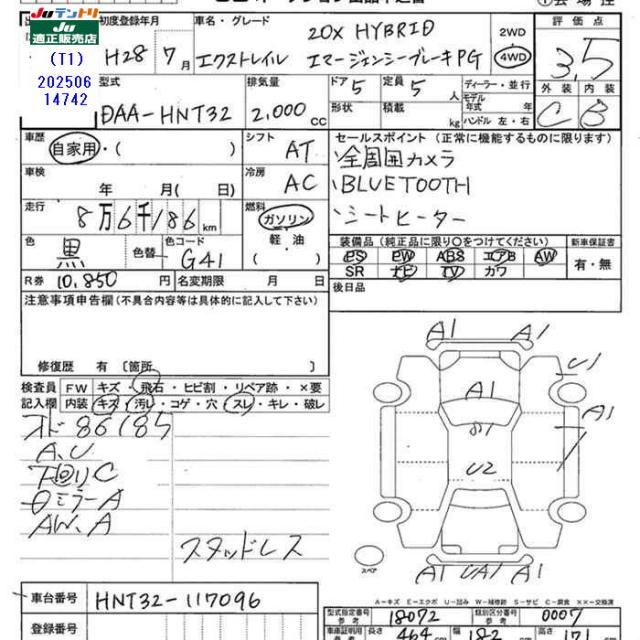 Juテントリ
Ju適正販売店
(T1)
202506
14742
初度登録年月
H28年7月
車名・グレード
20X HYBRID
エクストレイル エマージェンシーブレーキPG
2WD
4WD
評価点
3.5
外装 内装
C B
型式
DAA-HNT32
排気量
2,000cc
ドア 5
定員 5人
形状
積載 kg
ディーラー・並行
モデル年式 年
ハンドル 左・右
車歴
自家用・( )
シフト
AT
車検
年 月( 日)
冷房
AC
走行
8万6千186km
燃料
ガソリン
軽油
( )
色
黒
色替
色コード
G41
R券
10,850円
名変期限 月 日
セールスポイント(正常に機能するものに限ります)
・全周囲カメラ
・BLUETOOTH
・シートヒーター
装備品(純正品に限り○をつけてください)
新車保証書
PS PW ABS エアB AW
SR ナビ TV カワ
有・無
後日品
注意事項申告欄(不具合内容等は具体的に記入して下さい)
修復歴 有〔箇所 〕
検査員
記入欄
FW キズ・飛石・ヒビ割・リペア跡・×要
内装 キズ・汚レ・コゲ・穴・スレ・キレ・破レ
オド86185
A,U
下回りC
ミラーA
AW,A
スタッドレス
A1 A1
A1
U1
A1
U2
A1 UA1 A1
スペア
A-キズ E-エクボ U-凹み W-補修跡 S-サビ C-腐食 ××-交換済
車台番号
HNT32-117096
登録番号
型式指定番号
18072
類別区分番号
0007
車庫証明用
長さ 464cm
幅 182
高さ 171cm